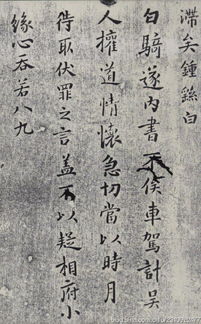 滯矣鍾繇白
白騎遂內書不俟車駕計吳
人權道情懷急切當以時月
待取伏罪之言蓋不以疑相府小
緣心吞若八九